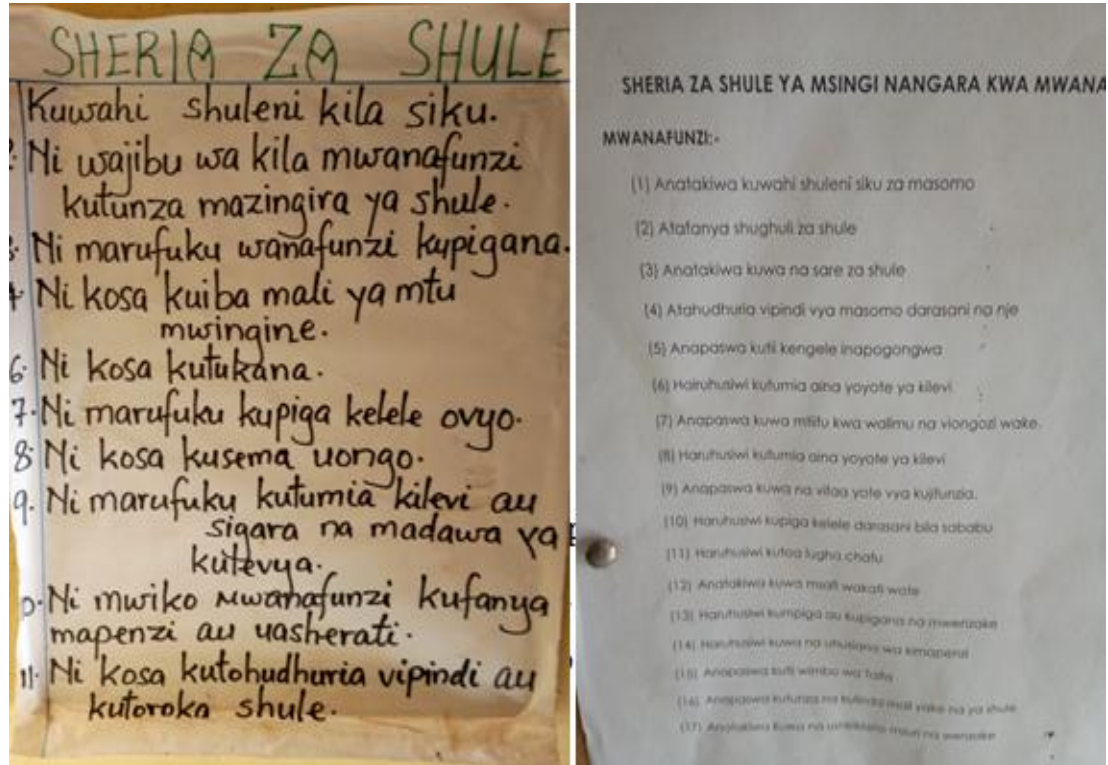 SHERIA ZA SHULE
Kuwahi shuleni kila siku.
Ni wajibu wa kila mwanafunzi
kutunza mazingira ya shule.
Ni marufuku wanafunzi kupigana.
Ni kosa kuiba mali ya mtu
mwingine.
6. Ni kosa kutukana.
7. Ni marufuku kupiga kelele ovyo.
8. Ni kosa kusema uongo.
9. Ni marufuku kutumia kilevi au
sigara na madawa ya
kulevya.
Ni mwiko Mwanafunzi kufanya
mapenzi au uasherati.
11. Ni kosa kutohudhuria vipindi au
kutoroka shule.
SHERIA ZA SHULE YA MSINGI NANGARA KWA MWANA
MWANAFUNZI:-
(1) Anatakiwa kuwahi shuleni siku za masomo
(2) Atafanya shughuli za shule
(3) Anatakiwa kuwa na sare za shule
(4) Atahudhuria vipindi vya masomo darasani na nje
(5) Anapaswa kutii kengele inapogongwa
(6) Hairuhusiwi kutumia aina yoyote ya kilevi
(7) Anapaswa kuwa mtiifu kwa walimu na viongozi wake.
(8) Haruhusiwi kutumia aina yoyote ya kilevi
(9) Anapaswa kuwa na vifaa vyote vya kujifunzia.
(10) Haruhusiwi kupiga kelele darasani bila sababu
(11) Haruhusiwi kutoa lugha chafu
(12) Anatakiwa kuwa wakati wote
(13) Haruhusiwi kumpiga au kupigana na mwenzake
(14) Haruhusiwi kuwa na uhusiano wa kimapenzi
(15) Anapaswa kutii wimbo wa taifa
(16) Anapaswa kutunza na kulinda mali yake na ya shule
(17) Anatakiwa kuwa na na wenzake